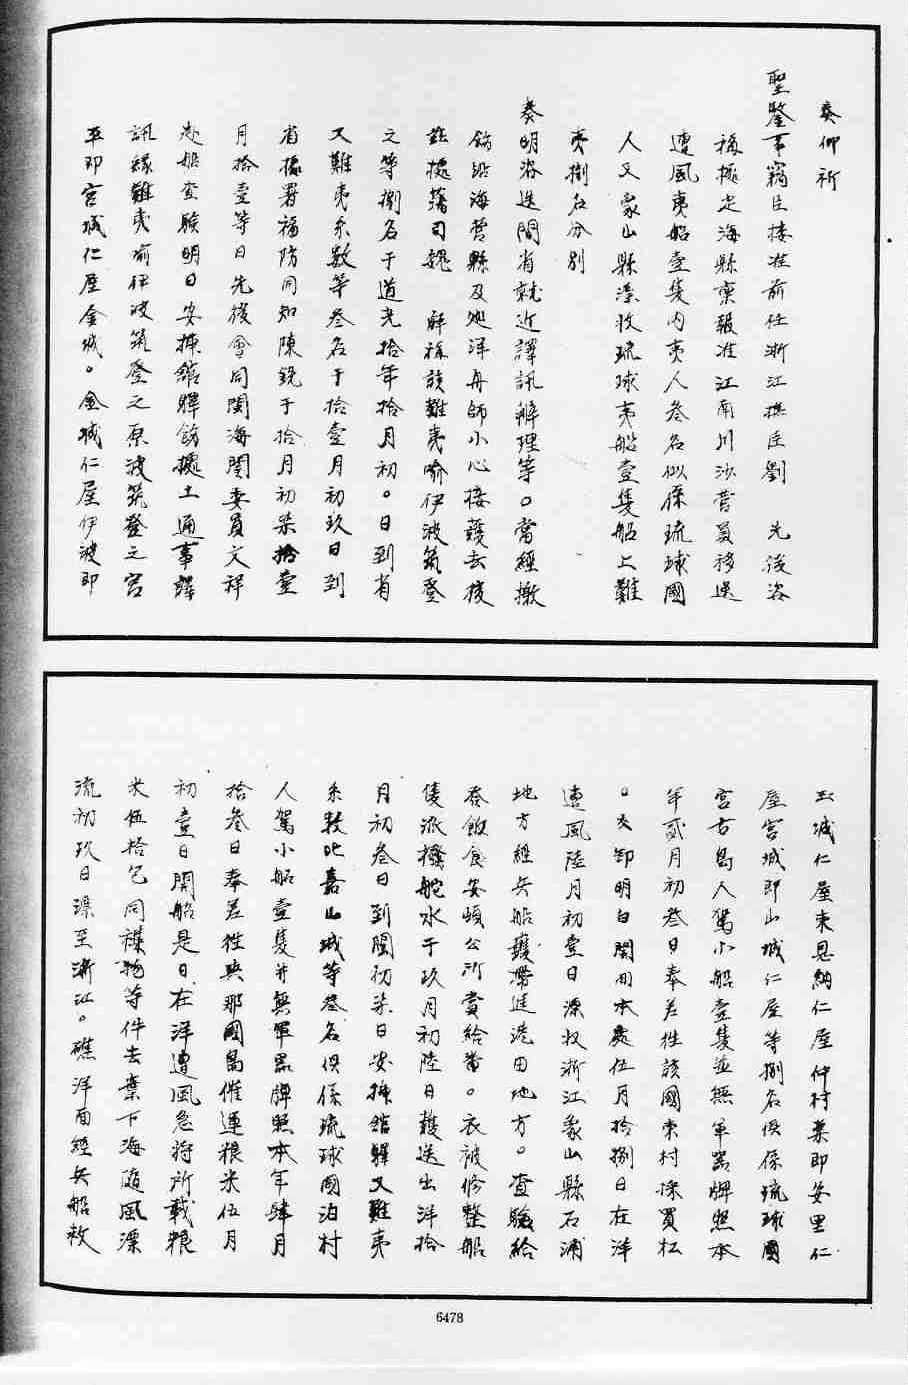 奏仰祈
聖鑒事竊臣接准前任浙江撫臣劉 先後咨
稱據定海縣稟報准江南川沙營員移送
遭風夷船壹隻內夷人叁名似係琉球國
人又象山縣漂收琉球夷船壹隻船上難
夷捌名分別
奏明咨送閩省就近譯訊辦理等。當經撤
飭沿海營縣及廵洋舟師小心接護去後
茲據藩司魏 詳稱該難夷喻伊波筑登
之等捌名于道光拾年拾月初。日到省
又難夷系數等叁名于拾壹月初玖日到
省據署福防同知陳銑于拾月初柒拾壹
月拾壹等日先後會同閩海関委員文祥
赴船查驗明白安揷舘驛飭據土通事譯
訊緣難夷喻伊波筑登之原波筑登之宮
平即宮城仁屋金城。金城仁屋伊波即
玉城仁屋東恩納仁屋仲村渠即安里仁
屋宮城即山城仁屋等捌名俱係琉球國
宮古島人駕小船壹隻並無軍器牌照本
年貳月初叁日奉差往該國東村採買松
。交卸明白開囬本處伍月拾捌日在洋
遭風陸月初壹日漂收浙江象山縣石浦
地方經兵船護帶進港田地方。查驗給
吞飯食安頓公所賞給番。衣被修整船
隻派撥舵水于玖月初陸日護送出洋拾
月初叁日到閩初柒日安揷舘驛又難夷
系数比嘉山城等叁名俱係琉球國泊村
人駕小船壹隻并無軍器牌照本年肆月
拾叁日奉差往與那國島催運粮米伍月
初壹日開船是日在洋遭風急将所載粮
米伍拾包同襍物等件去棄下海隨風漂
流初玖日漂至浙江。礁洋面經兵船救
6478